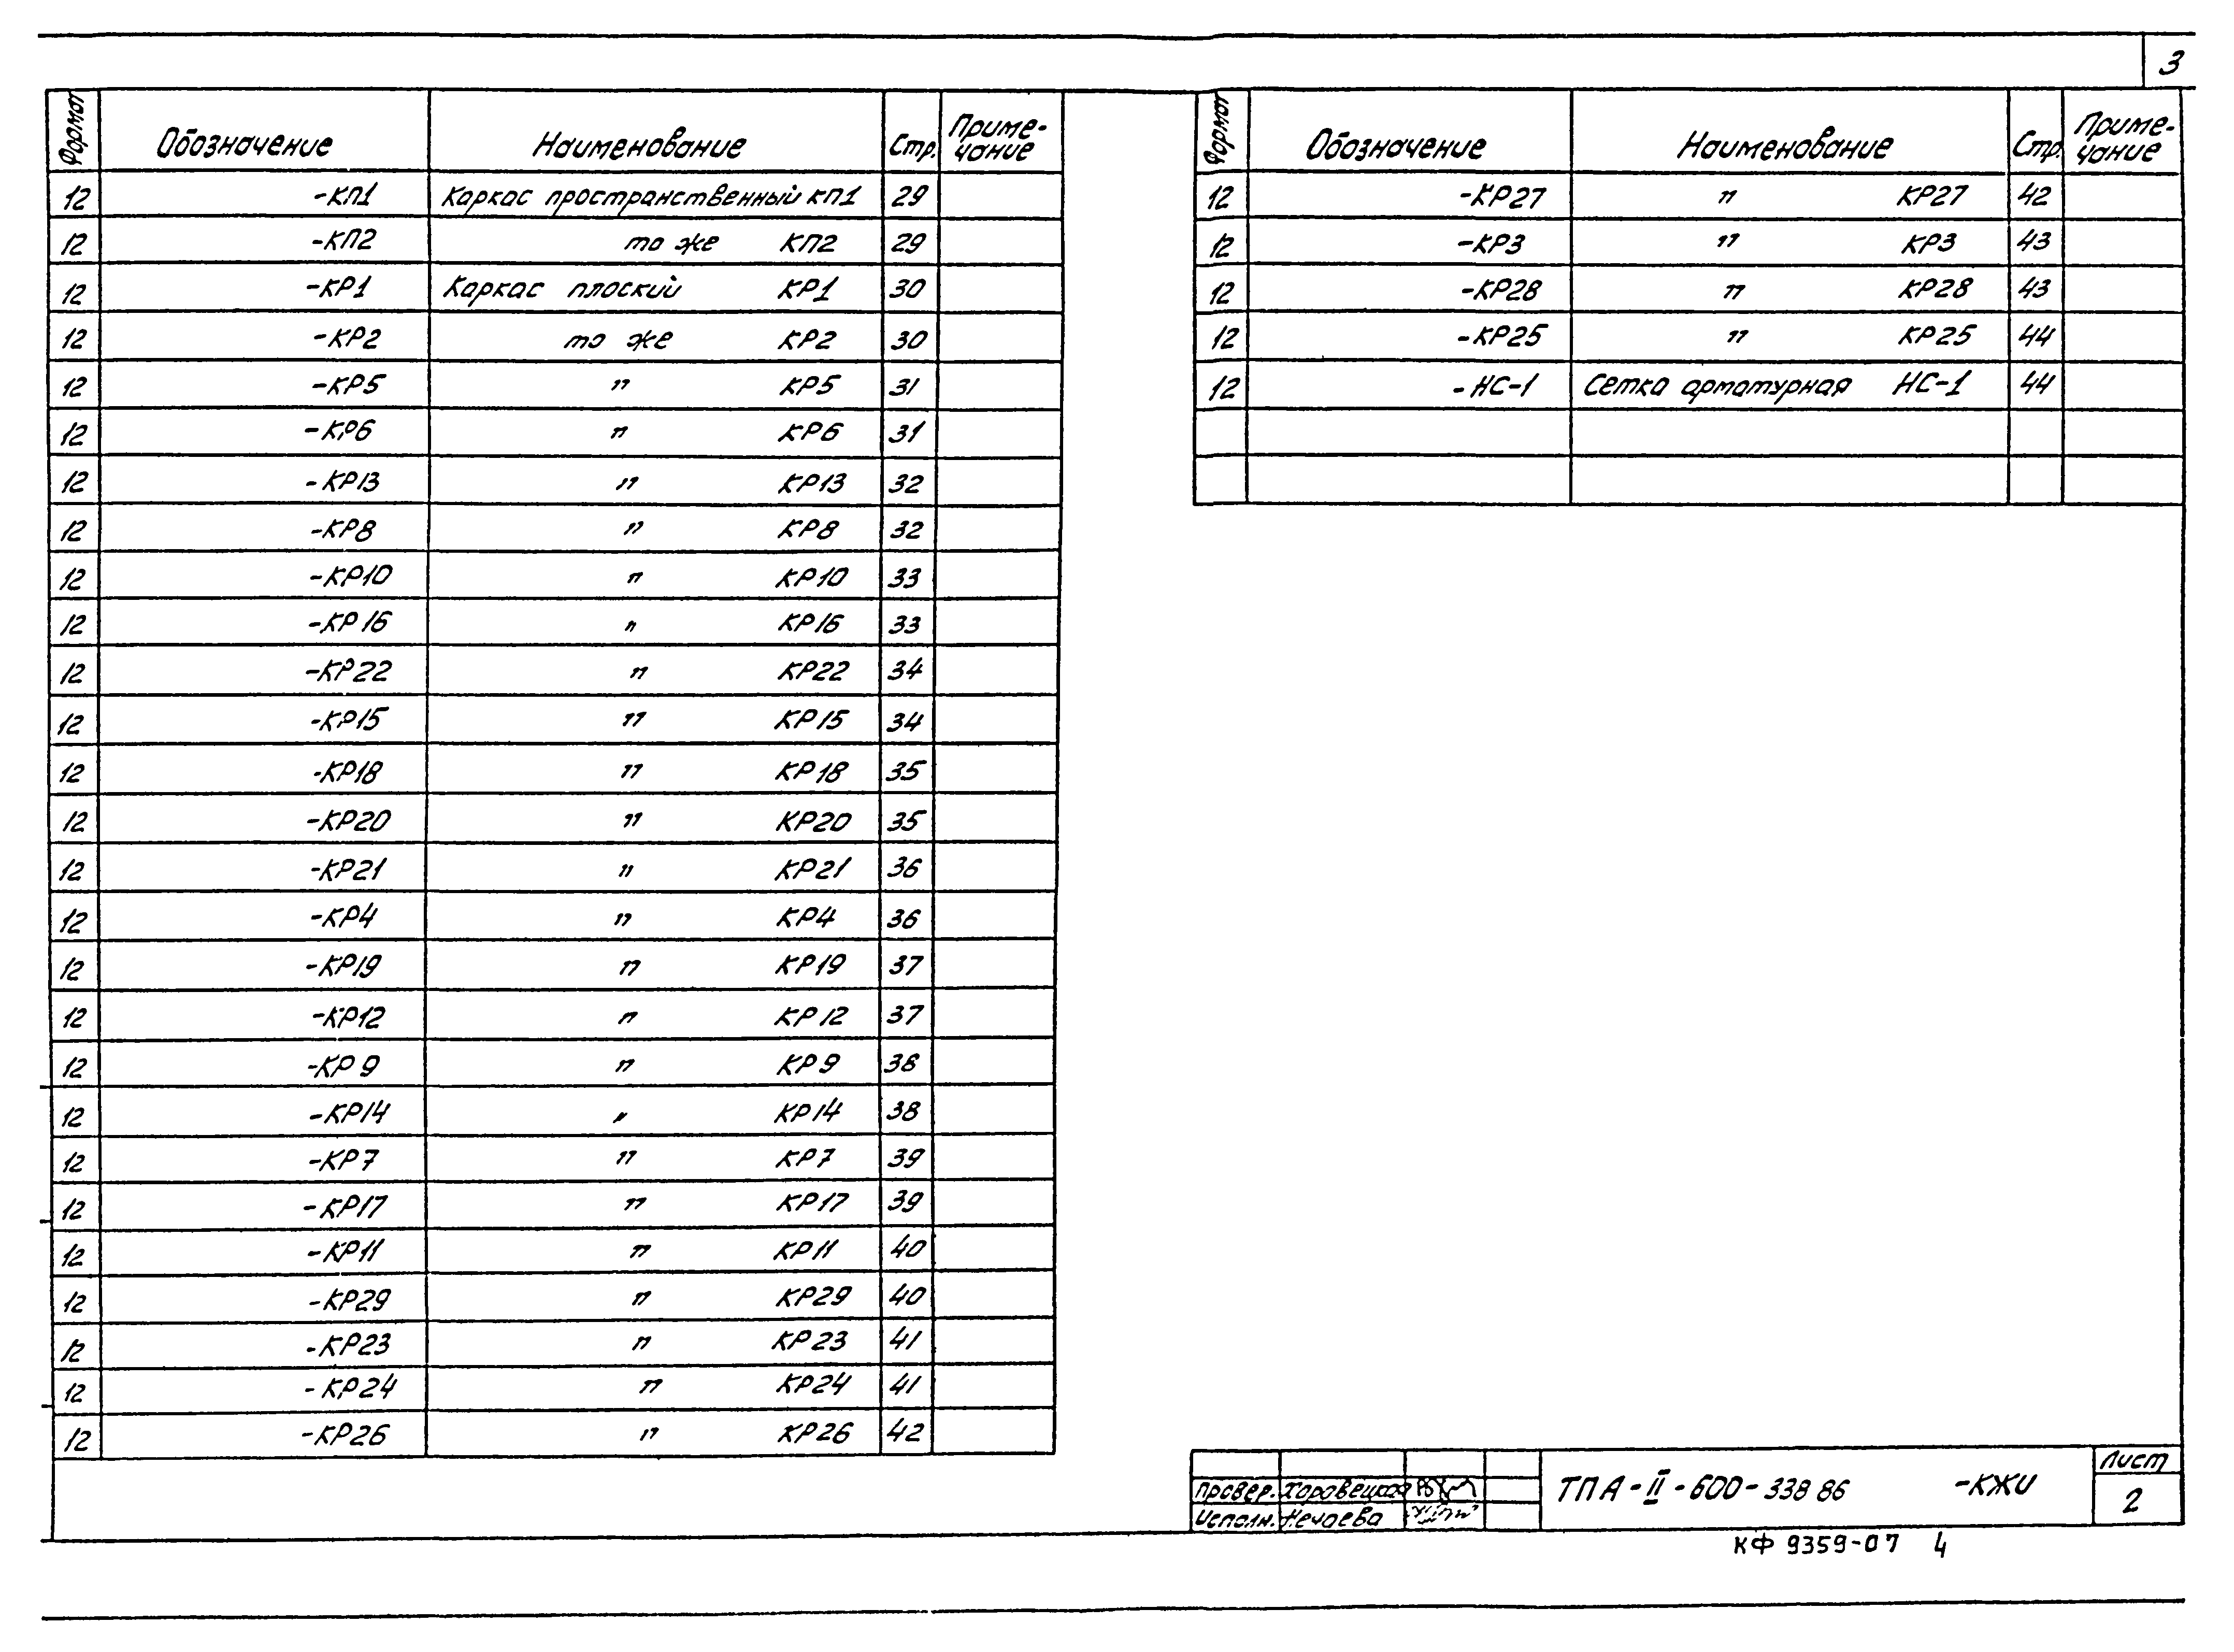 3
Формат Обозначение Наименование Стр. Приме-
чание
12 -КП1 Каркас пространственный КП1 29
12 -КП2 то же КП2 29
12 -КР1 Каркас плоский КР1 30
12 -КР2 то же КР2 30
12 -КР5 " КР5 31
12 -КР6 " КР6 31
12 -КР13 " КР13 32
12 -КР8 " КР8 32
12 -КР10 " КР10 33
12 -КР16 " КР16 33
12 -КР22 " КР22 34
12 -КР15 " КР15 34
12 -КР18 " КР18 35
12 -КР20 " КР20 35
12 -КР21 " КР21 36
12 -КР4 " КР4 36
12 -КР19 " КР19 37
12 -КР12 " КР12 37
12 -КР9 " КР9 38
12 -КР14 " КР14 38
12 -КР7 " КР7 39
12 -КР17 " КР17 39
12 -КР11 " КР11 40
12 -КР29 " КР29 40
12 -КР23 " КР23 41
12 -КР24 " КР24 41
12 -КР26 " КР26 42
Формат Обозначение Наименование Стр. Приме-
чание
12 -КР27 " КР27 42
12 -КР3 " КР3 43
12 -КР28 " КР28 43
12 -КР25 " КР25 44
12 -НС-1 Сетка арматурная НС-1 44
Провер. Хоровецкая
Исполн. Нечаева
ТП А-II-600-338 86 -КЖИ
Лист
2
КФ 9359-07 4